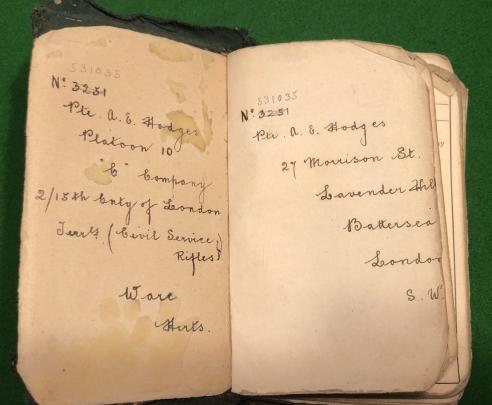 531035
No. 3251
Pte. A. E. Hodges
Platoon 10
"C" Company
2/15th Cnty of London
Terrls. (Civil Service
Rifles)
Ware
Herts.
531035
No. 3251
Pte. A. E. Hodges
27 Morrison St.
Lavender Hill
Battersea
London
S. W.